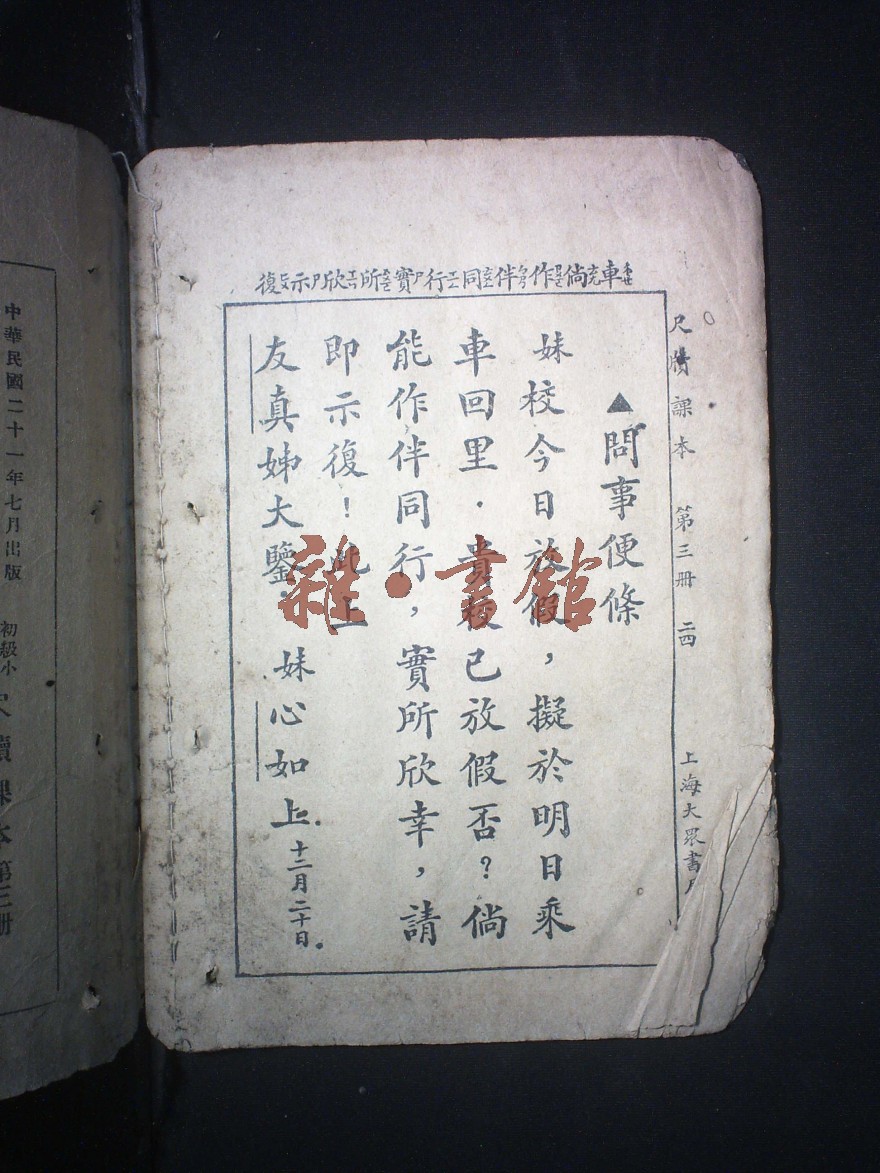 車倘作伴同行實所欣示復
▲問事便條
妹校今日放假，擬於明日乘
車回里．貴校已放假否？倘
能作伴同行，實所欣幸，請
即示復！此上
友真姊大鑒． 妹心如上．十二月二十日．
尺牘課本 第三冊 二四 上海大眾書局
中華民國二十一年七月出版 初級小
尺牘課本第三冊
雜·書館